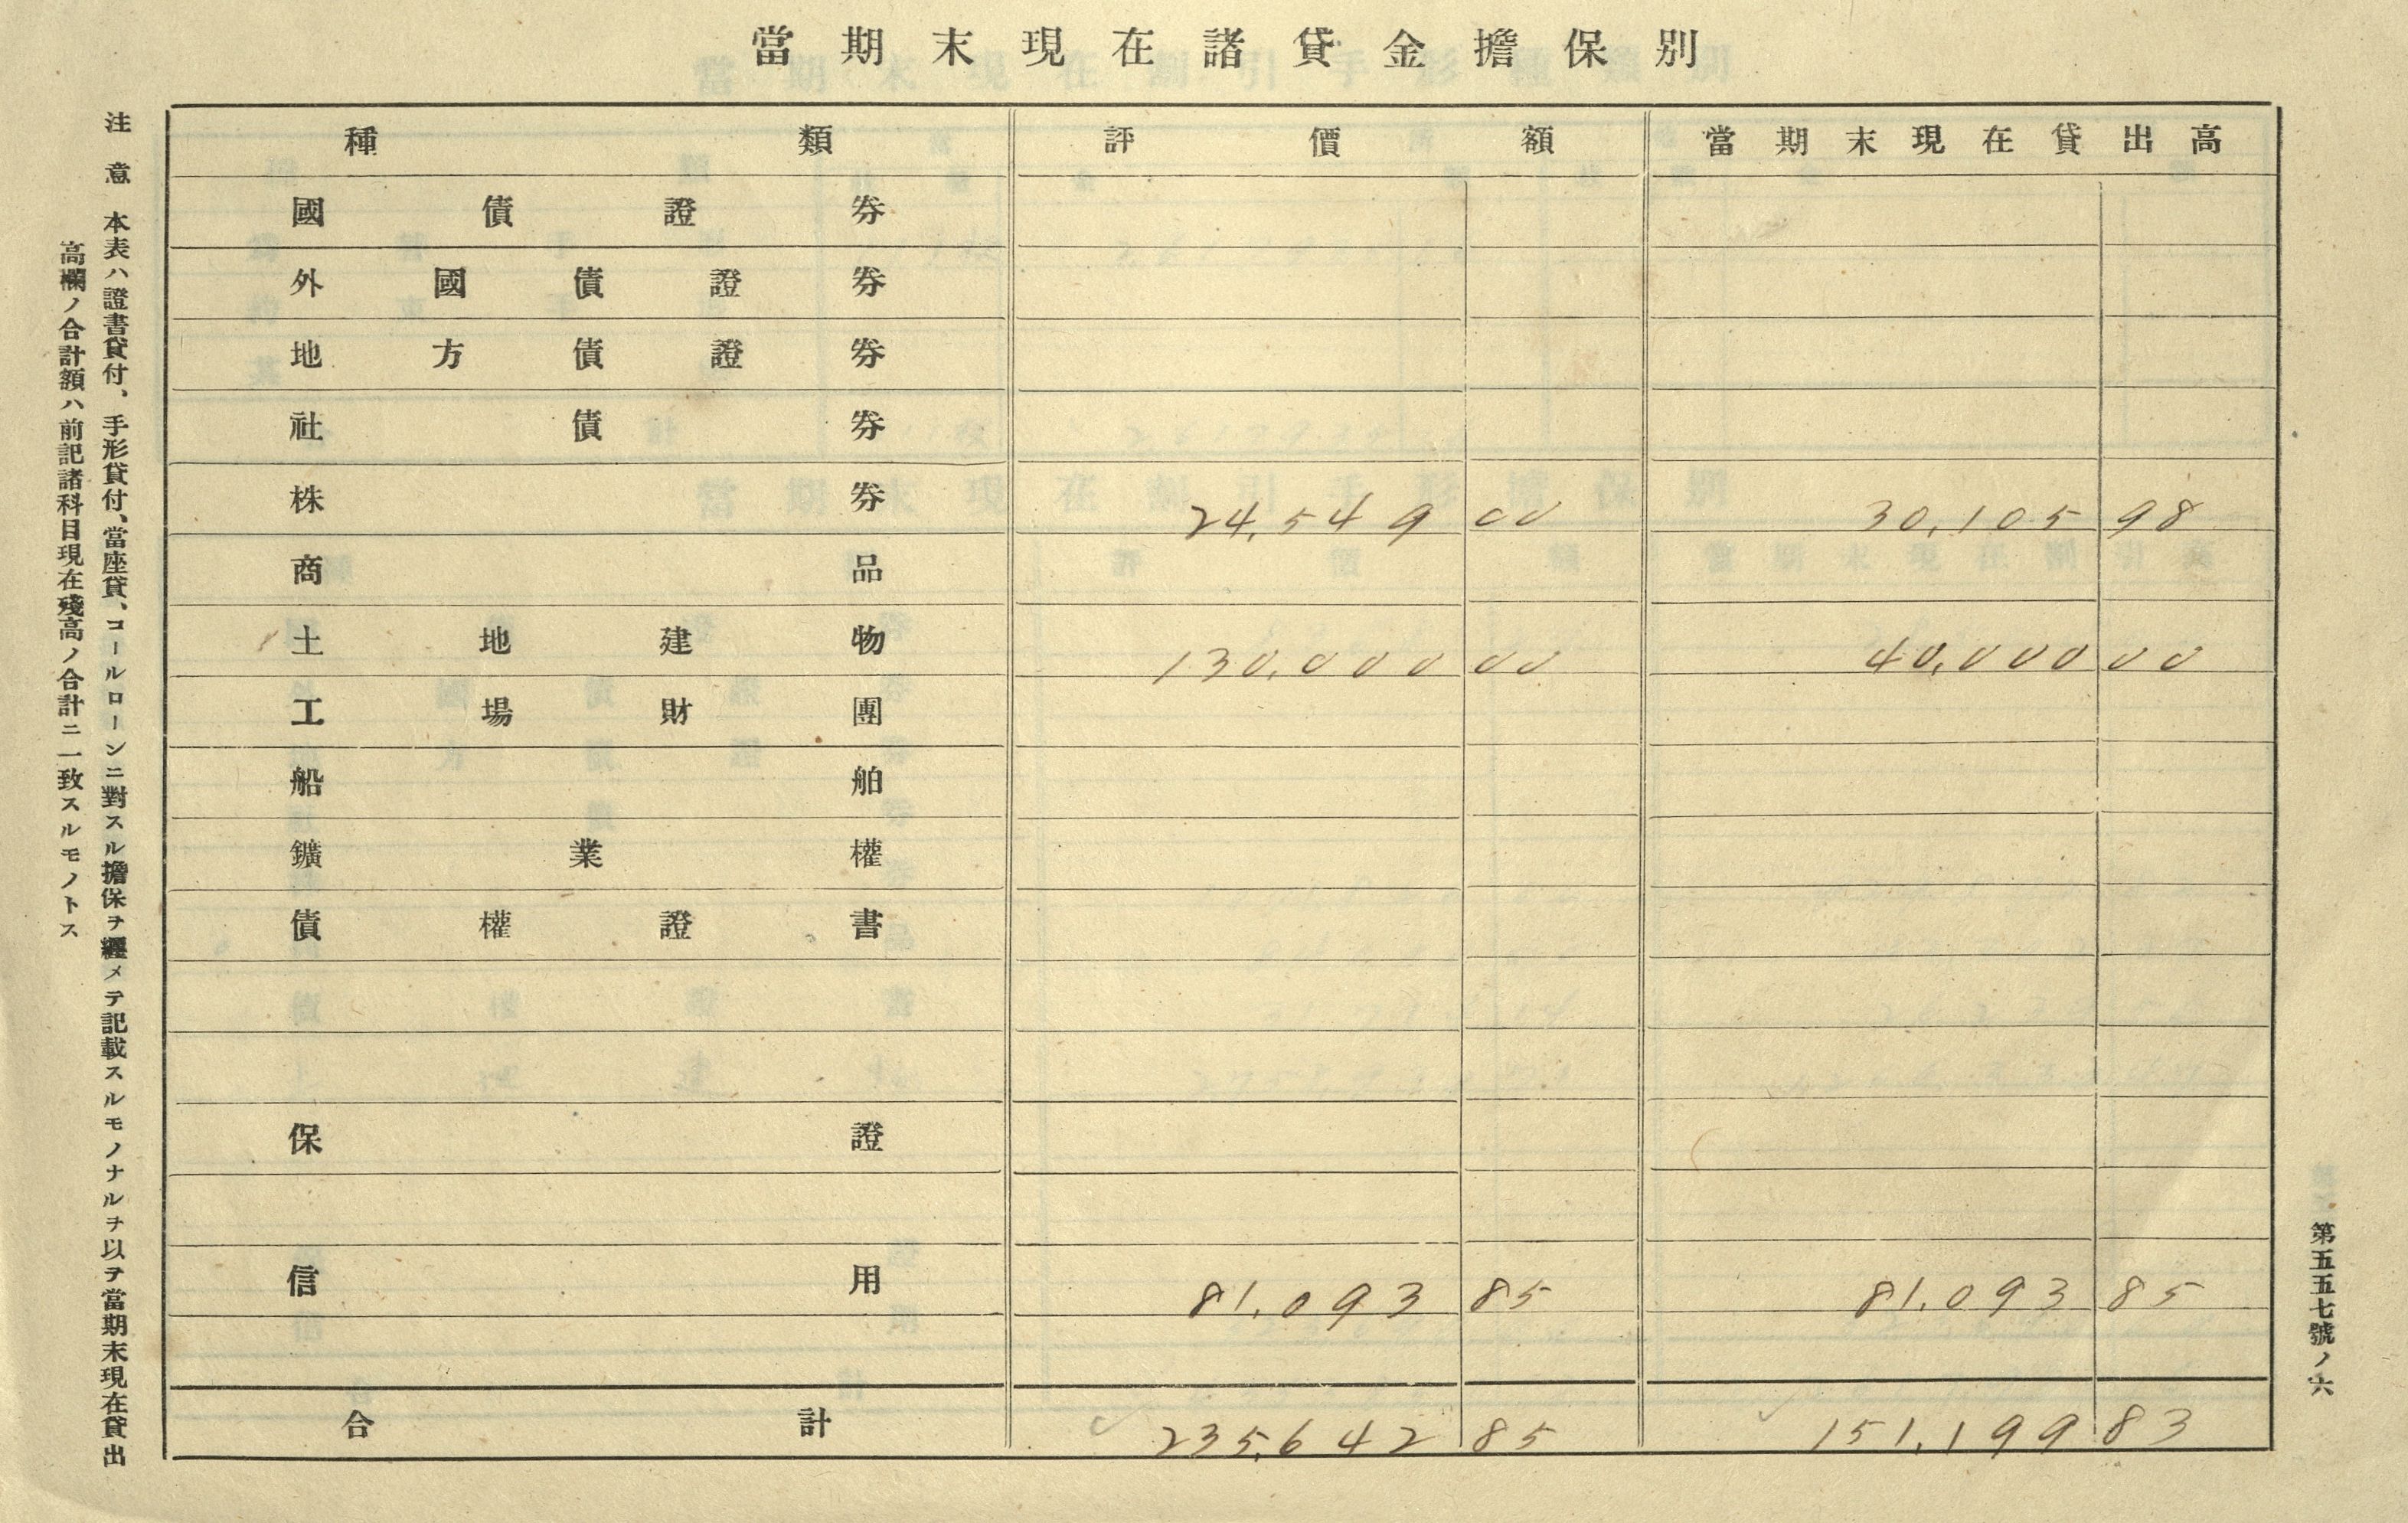 當期末現在諸貸金擔保別
種類 評價額 當期末現在貸出高
國債證券
外國債證券
地方債證券
社債券
株券 24,549 00 30,105 98
商品
土地建物 130,000 00 40,000 00
工場財團
船舶
鑛業權
債權證書
保證
信用 81,093 85 81,093 85
合計 235,642 85 151,199 83
第五五七號ノ六
注意 本表ハ證書貸付、手形貸付、當座貸、コールローンニ對スル擔保ヲ纒メテ記載スルモノナルヲ以テ當期末現在貸出
高欄ノ合計額ハ前記諸科目現在殘高ノ合計ニ一致スルモノトス